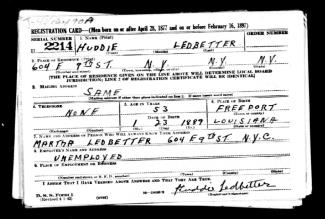 REGISTRATION CARD—(Men born on or after April 28, 1877 and on or before February 16, 1897)
SERIAL NUMBER 1. NAME (Print) ORDER NUMBER
2214 HUDDIE LEDBETTER
2. PLACE OF RESIDENCE (Print)
604 E 9TH ST. N.Y. N.Y. N.Y.
[THE PLACE OF RESIDENCE GIVEN ON THE LINE ABOVE WILL DETERMINE LOCAL BOARD
JURISDICTION; LINE 2 OF REGISTRATION CERTIFICATE WILL BE IDENTICAL]
3. MAILING ADDRESS
SAME
4. TELEPHONE 5. AGE IN YEARS 6. PLACE OF BIRTH
NONE 53 FREEPORT
DATE OF BIRTH
1 23 1889 LOUISIANA
7. NAME AND ADDRESS OF PERSON WHO WILL ALWAYS KNOW YOUR ADDRESS
MARTHA LEDBETTER 604 E 9TH ST N.Y.C.
8. EMPLOYER'S NAME AND ADDRESS
UNEMPLOYED
9. PLACE OF EMPLOYMENT OR BUSINESS
I AFFIRM THAT I HAVE VERIFIED ABOVE ANSWERS AND THAT THEY ARE TRUE.
D. S. S. Form 1
Huddie Ledbetter